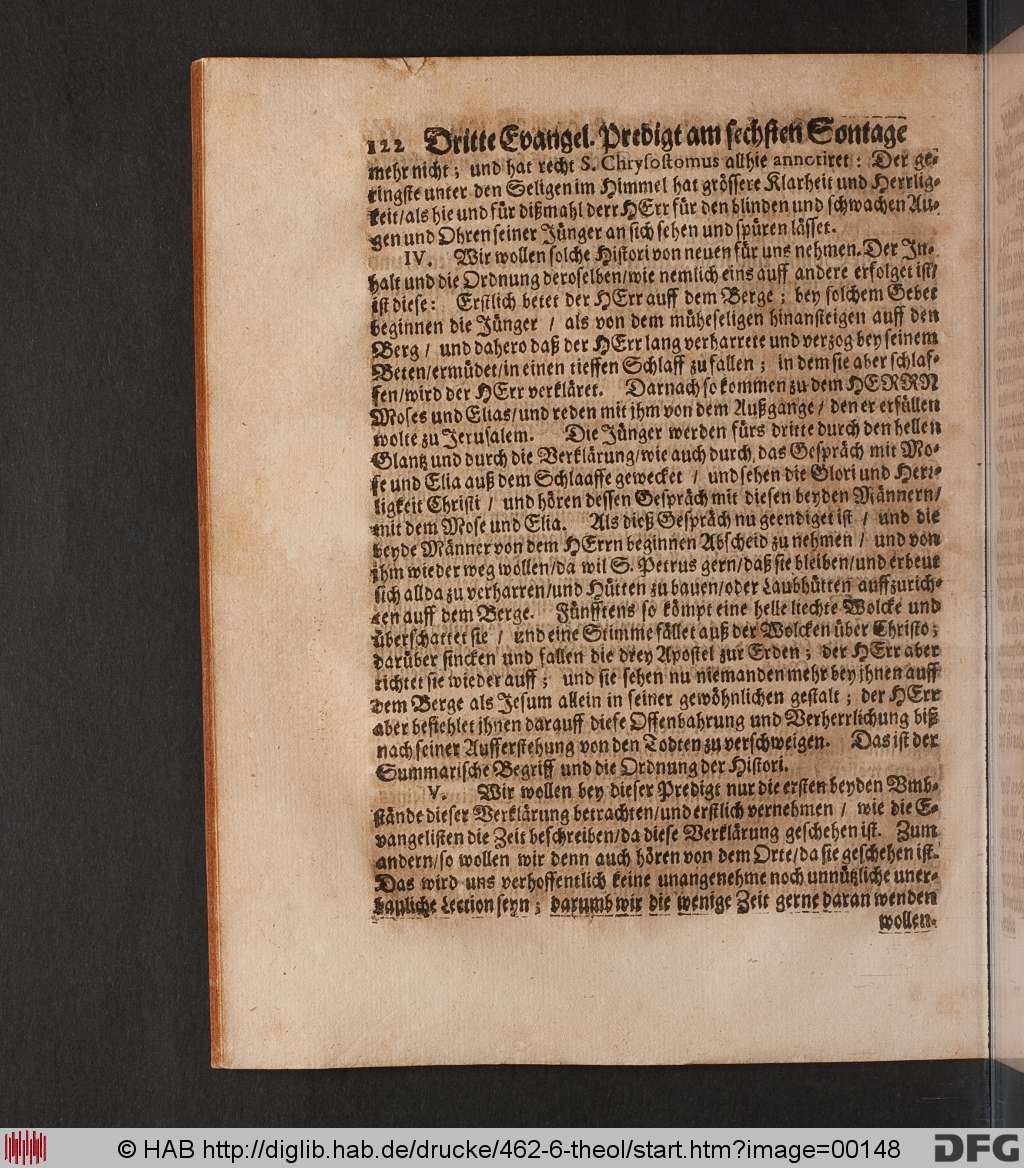 122 Dritte Evangel. Predigt am sechsten Sontage
mehr nicht; und hat recht S. Chrysostomus allhie annotiret: Der ge-
ringste unter den Seligen im Himmel hat grössere Klarheit und Herrlig-
keit/als hie und für dißmahl derr HErr für den blinden und schwachen Au-
gen und Ohren seiner Jünger an sich sehen und spüren lässet.
IV. Wir wollen solche Histori von neuen für uns nehmen. Der In-
halt und die Ordnung deroselben/wie nemlich eins auff andere erfolget ist/
ist diese: Erstlich betet der HErr auff dem Berge; bey solchem Gebet
beginnen die Jünger / als von dem müheseligen hinansteigen auff den
Berg / und dahero daß der HErr lang verharrete und verzog bey seinem
Beten/ermüdet/in einen tieffen Schlaff zu fallen; in dem sie aber schlaf-
fen/wird der HErr verkläret. Darnach so kommen zu dem HERRN
Moses und Elias/und reden mit jhm von dem Außgange / den er erfüllen
wolte zu Jerusalem. Die Jünger werden fürs dritte durch den hellen
Glantz und durch die Verklärung/wie auch durch das Gespräch mit Mo-
se und Elia auß dem Schlaaffe gewecket / und sehen die Glori und Herr-
ligkeit Christi / und hören dessen Gespräch mit diesen beyden Männern/
mit dem Mose und Elia. Als dieß Gespräch nu geendiget ist / und die
beyde Männer von dem HErrn beginnen Abscheid zu nehmen / und von
jhm wieder weg wollen/da wil S. Petrus gern/daß sie bleiben/und erbeut
sich allda zu verharren/und Hütten zu bauen/oder Laubhütten auffzurich-
ten auff dem Berge. Fünfftens so kömpt eine helle liechte Wolcke und
überschattet sie / und eine Stimme fället auß der Wolcken über Christo;
darüber sincken und fallen die drey Apostel zur Erden; der HErr aber
richtet sie wieder auff; und sie sehen nu niemanden mehr bey jhnen auff
dem Berge als Jesum allein in seiner gewöhnlichen gestalt; der HErr
aber befiehlet jhnen darauff diese Offenbahrung und Verherrlichung biß
nach seiner Aufferstehung von den Todten zu verschweigen. Das ist der
Summarische Begriff und die Ordnung der Histori.
V. Wir wollen bey dieser Predigt nur die ersten beyden Vmb-
stände dieser Verklärung betrachten/und erstlich vernehmen / wie die E-
vangelisten die Zeit beschreiben/da diese Verklärung geschehen ist. Zum
andern/so wollen wir denn auch hören von dem Orte/da sie geschehen ist.
Das wird uns verhoffentlich keine unangenehme noch unnützliche uner-
bauliche Lection seyn; darumb wir die wenige Zeit gerne daran wenden
wollen.
© HAB http://diglib.hab.de/drucke/462-6-theol/start.htm?image=00148
DFG